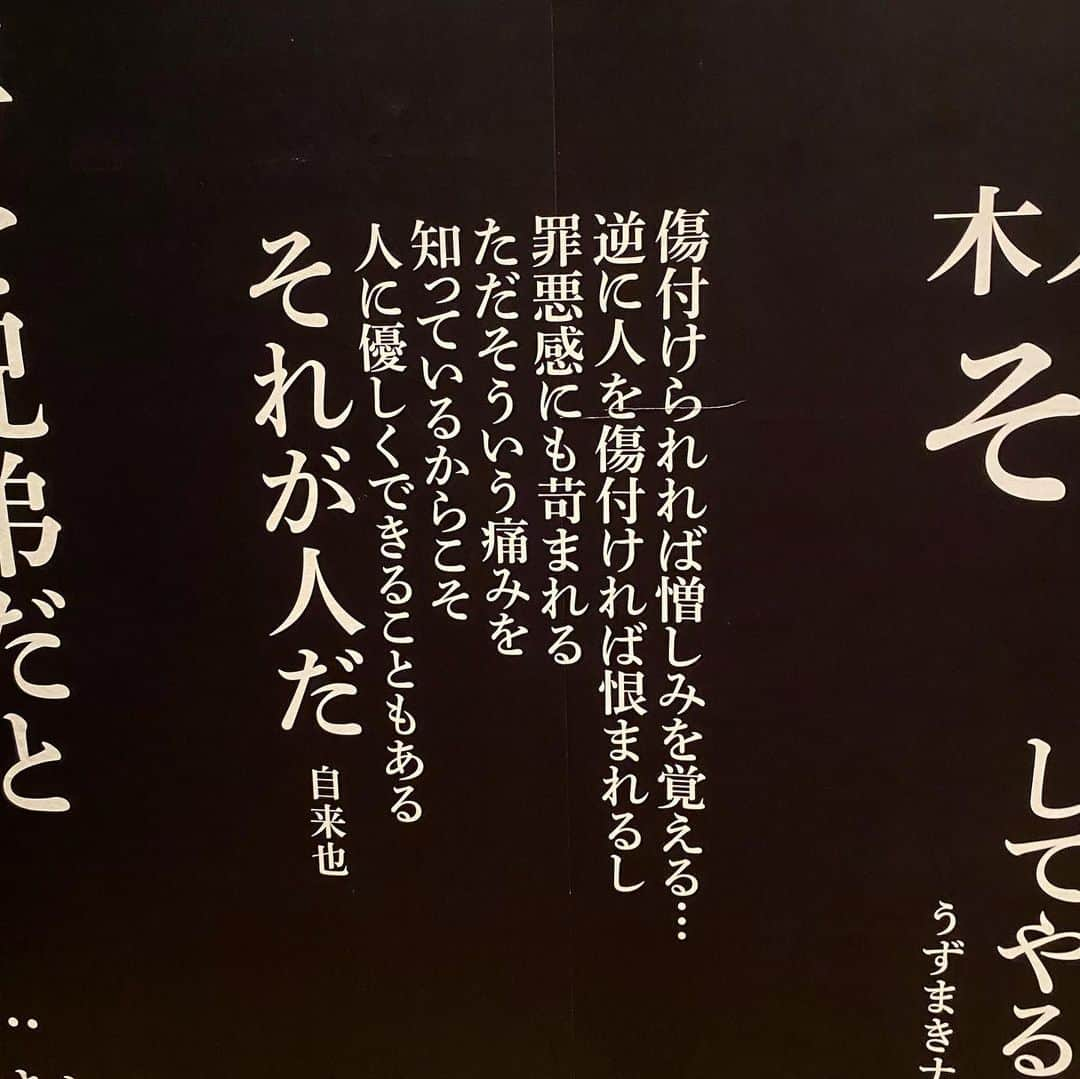 木
そ
してやる
うずまきナ
傷付けられれば憎しみを覚える…
逆に人を傷付ければ恨まれるし
罪悪感にも苛まれる
ただそういう痛みを
知っているからこそ
人に優しくできることもある
それが人だ
自来也
兄弟だと